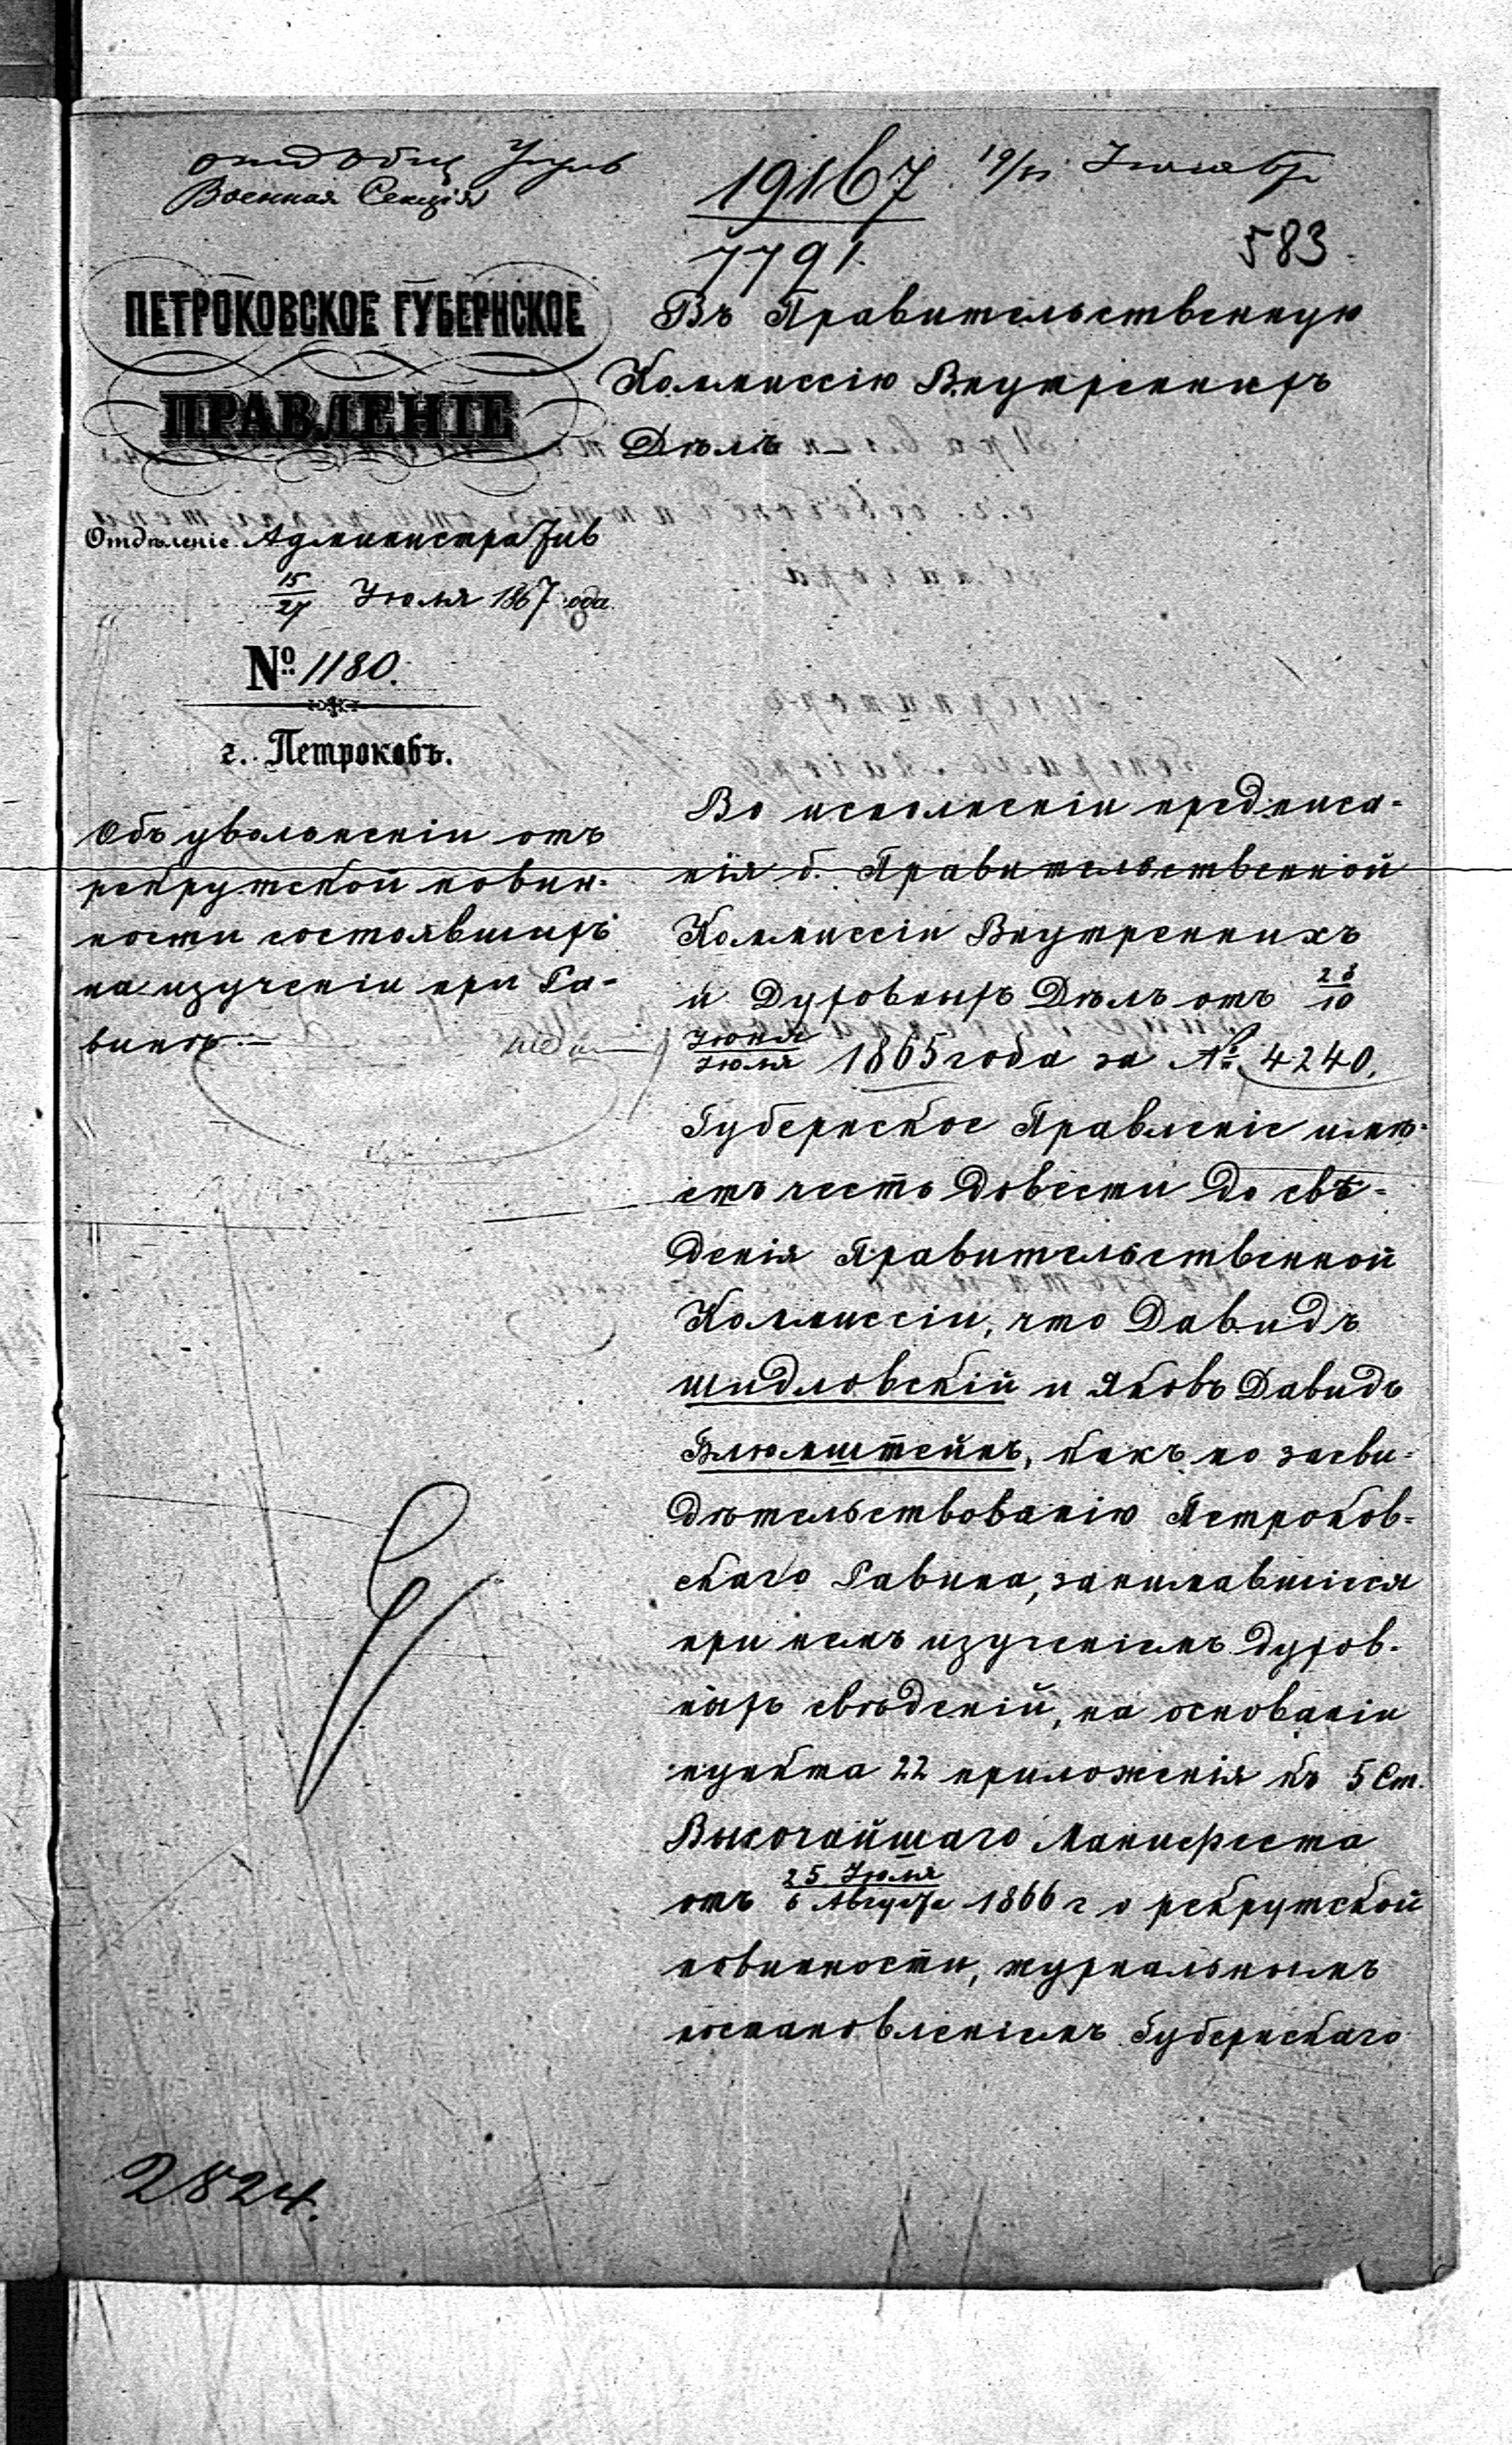 Военная Секція
19167
7791.
583.
ПЕТРОКОВСКОЕ ГУБЕРНСКОЕ
ПРАВЛЕНІЕ
Отдѣленіе Административ
15/27 Іюля 1867 года
№ 1180.
г. Петроковъ.
Объ увольненіи отъ
рекрутской повин-
ности состоявшихъ
на изученіи при Ра-
винѣ.—
Въ Правительственную
Коммиссію Внутреннихъ
Дѣлъ
Во исполненіи предписа-
нія б. Правительственной
Коммиссіи Внутреннихъ
и Духовныхъ Дѣлъ отъ 28/10
Іюня/Іюля 1865 года за № 4240,
Губернское Правленіе имѣ-
етъ честь довести до свѣ-
денія Правительственной
Коммиссіи, что Давидъ
Шидловскій и Яковъ Давидъ
Блюмштейнъ, какъ по засви-
дѣтельствованію Петроков-
скаго Равина, занимавшіеся
при немъ изученіемъ духов-
ныхъ свѣденій, на основаніи
пункта 22 приложенія къ 5 Ст.
Высочайшаго Манифеста
отъ 25 Іюля/6 Августа 1866 г о рекрутской
повинности, журнальнымъ
постановленіемъ Губернскаго
2824.